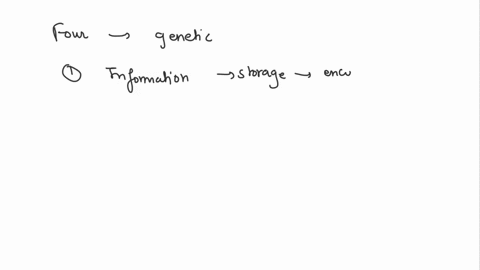 Four → genetic
① Information → storage → enco